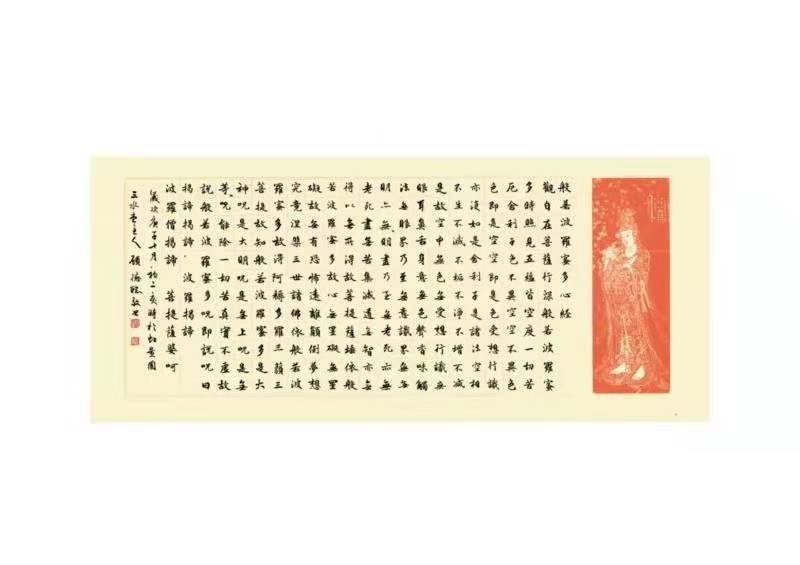 般若波羅蜜多心經
觀自在菩薩行深般若波羅蜜
多時照見五蘊皆空度一切苦
厄舍利子色不異空空不異色
色即是空空即是色受想行識
亦復如是舍利子是諸法空相
不生不滅不垢不淨不增不減
是故空中無色無受想行識無
眼耳鼻舌身意無色聲香味觸
法無眼界乃至無意識界無無
明亦無無明盡乃至無老死亦無
老死盡無苦集滅道無智亦無
得以無所得故菩提薩埵依般
若波羅蜜多故心無罣礙無罣
礙故無有恐怖遠離顛倒夢想
究竟涅槃三世諸佛依般若波
羅蜜多故得阿耨多羅三藐三
菩提故知般若波羅蜜多是大
神呪是大明呪是無上呪是無
等等呪能除一切苦真實不虛故
說般若波羅蜜多呪即說呪曰
揭諦揭諦 波羅揭諦
波羅僧揭諦 菩提薩婆呵
歲次庚子十月初二亥時於園
三水堂主人 顧德